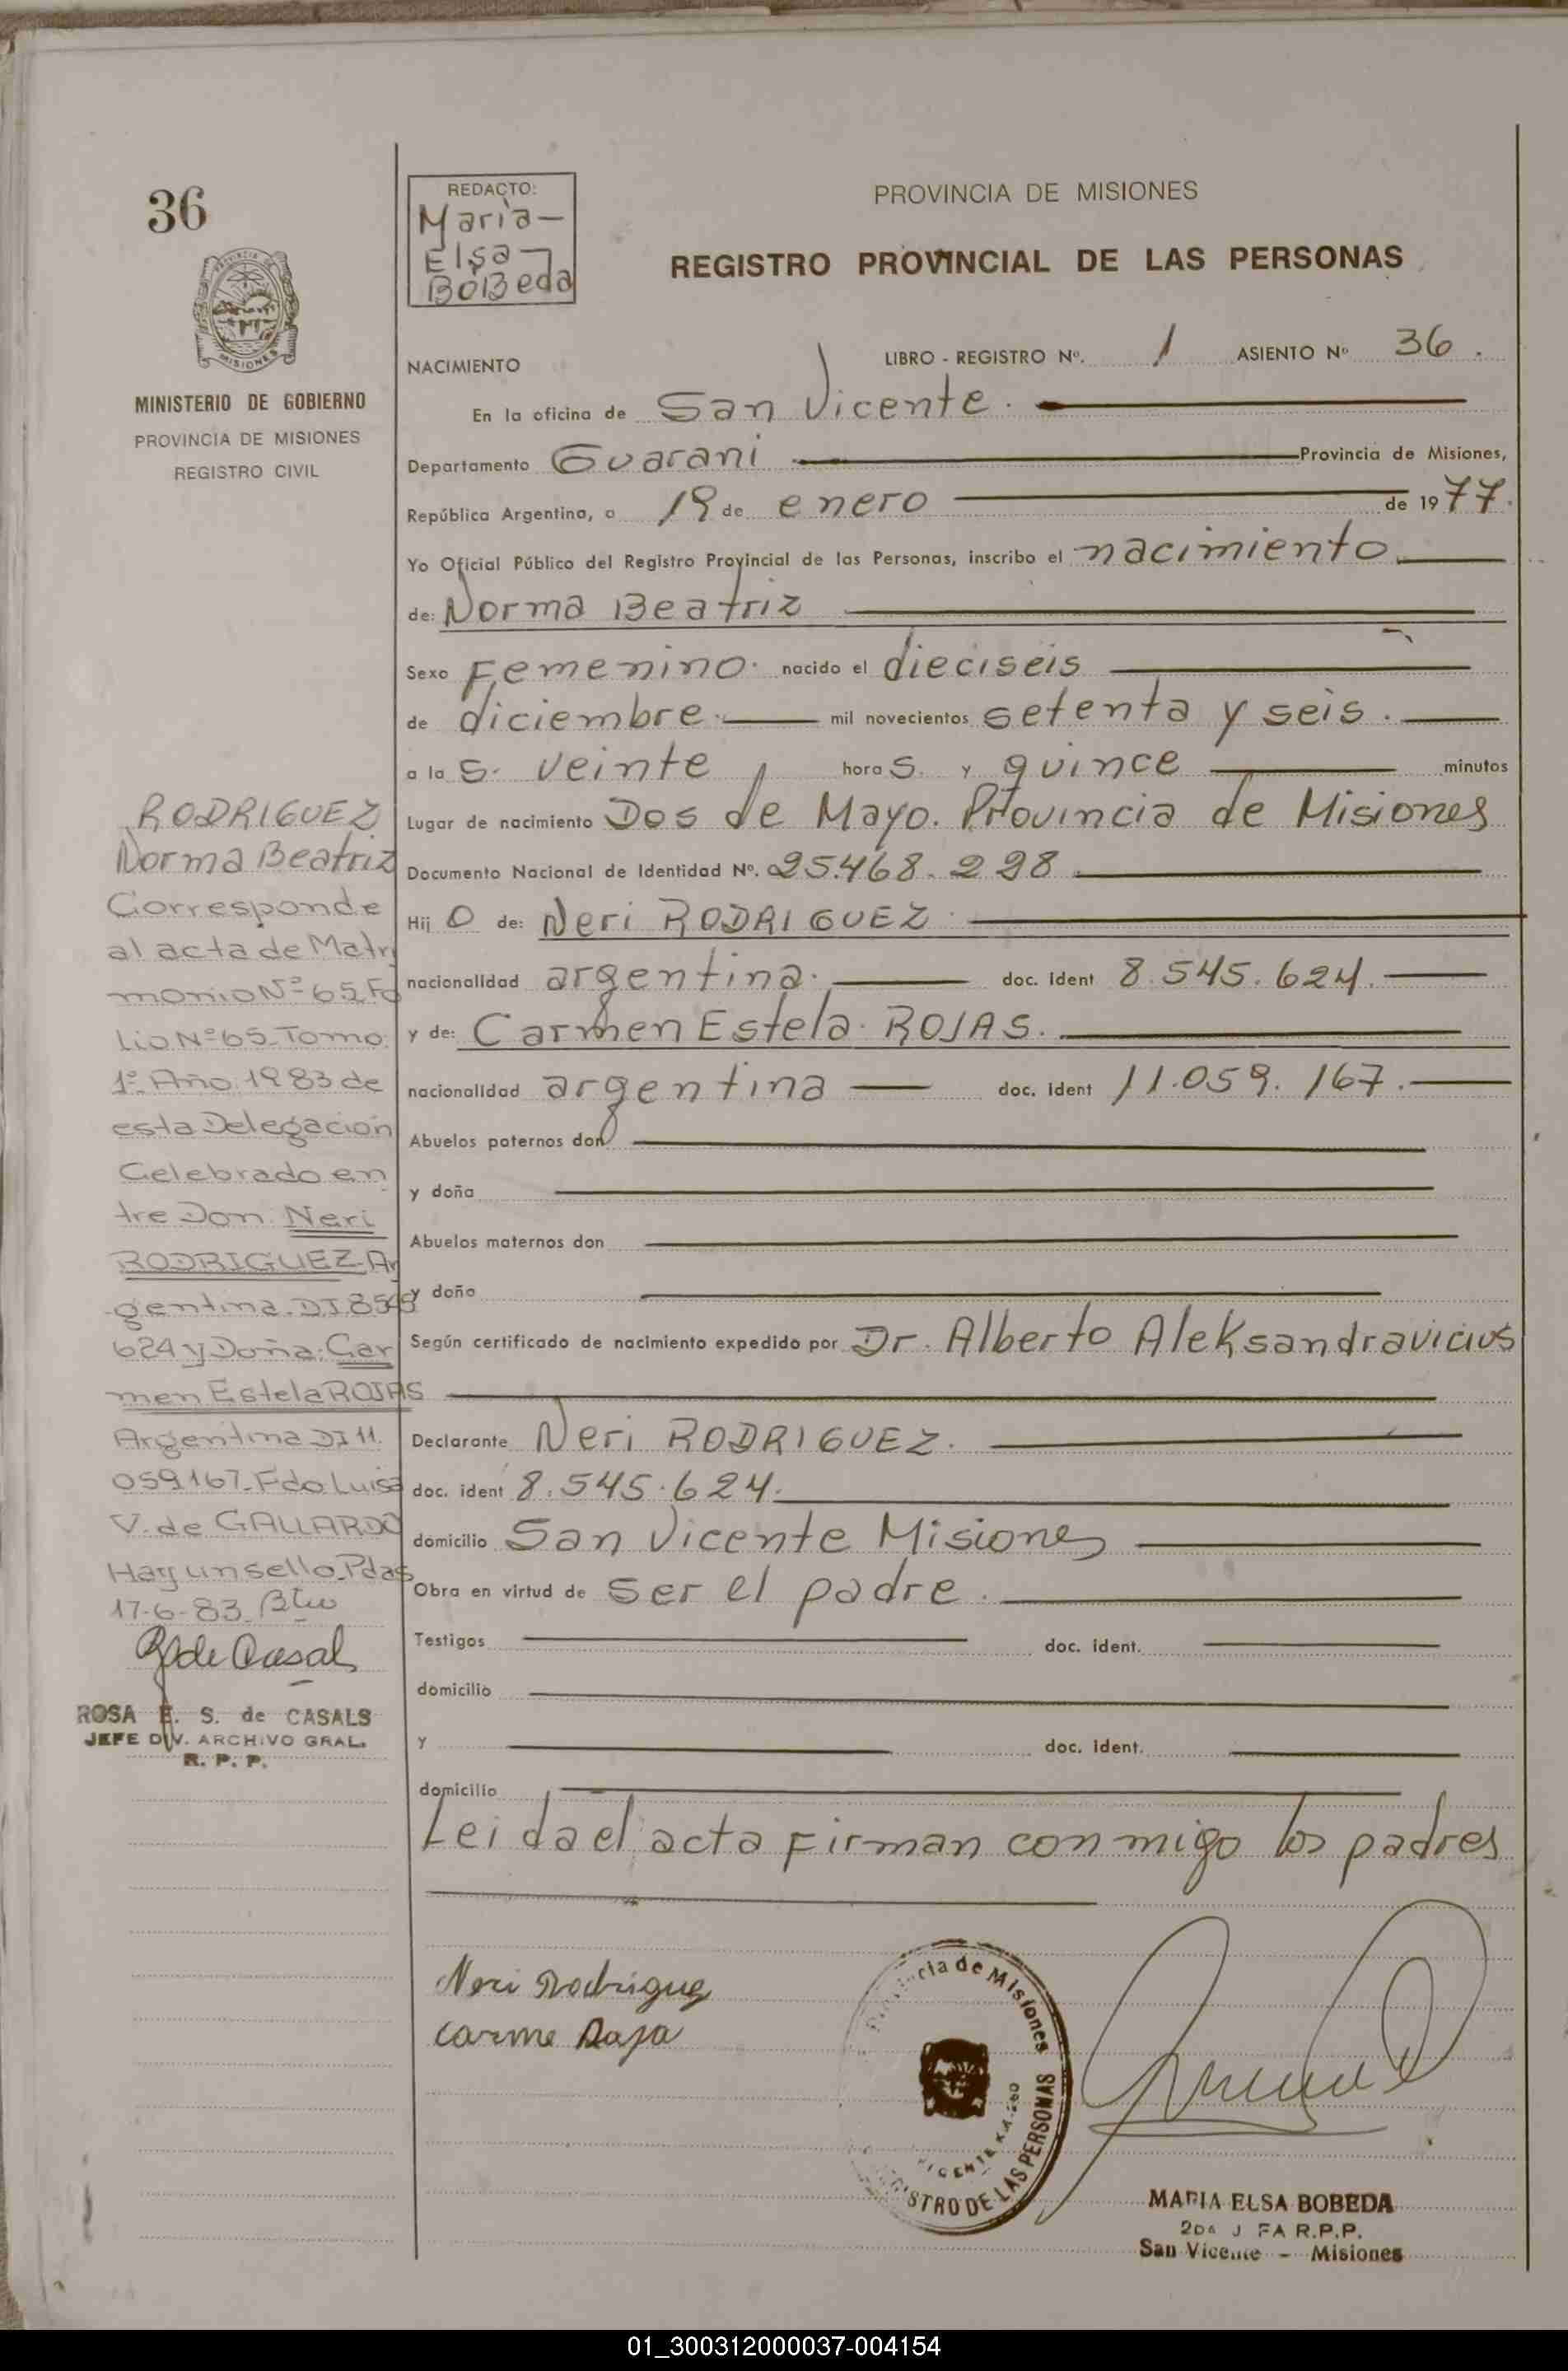 36
PROVINCIA DE
MISIONES
MINISTERIO DE GOBIERNO
PROVINCIA DE MISIONES
REGISTRO CIVIL
RODRIGUEZ
Norma Beatriz
Corresponde
al acta de Matri
monio Nº 65, Fo
lio Nº 65 Tomo
1º Año 1983 de
esta Delegación
Celebrado en
tre Don Neri
RODRIGUEZ-Ar
gentina. DI. 8545
624 y Doña: Car
men Estela ROJAS
Argentina DI 11.
059167. Fdo Luisa
V. de GALLARDO
Hay un sello. Pdas
17-6-83
R de Casals
ROSA E. S. de CASALS
JEFE DIV. ARCHIVO GRAL.
R. P. P.
REDACTO:
Maria
Elsa
BoBeda
PROVINCIA DE MISIONES
REGISTRO PROVINCIAL DE LAS PERSONAS
NACIMIENTO LIBRO - REGISTRO Nº. 1 ASIENTO Nº 36.
En la oficina de San Vicente.
Departamento Guarani Provincia de Misiones,
República Argentina, a 19 de enero de 1977.
Yo Oficial Público del Registro Provincial de las Personas, inscribo el nacimiento
de: Norma Beatriz
Sexo Femenino. nacido el dieciseis
de diciembre. mil novecientos setenta y seis.
a la s. veinte hora s. y quince minutos
Lugar de nacimiento Dos de Mayo. Provincia de Misiones
Documento Nacional de Identidad Nº. 25.468.298
Hij O de: Neri RODRIGUEZ.
nacionalidad argentina. doc. ident 8.545.624.
y de: Carmen Estela ROJAS.
nacionalidad argentina doc. ident 11.059.167.
Abuelos paternos don
y doña
Abuelos maternos don
y doña
Según certificado de nacimiento expedido por Dr. Alberto Aleksandravicius
Declarante Neri RODRIGUEZ.
doc. ident 8.545.624.
domicilio San Vicente Misiones
Obra en virtud de ser el padre.
Testigos doc. ident.
domicilio
y doc. ident.
domicilio
Leida el acta firman conmigo los padres
Neri Rodriguez
Carme Roja
Provincia de Misiones
VICENTE
REGISTRO DE LAS PERSONAS
MARIA ELSA BOBEDA
2DA J FA R.P.P.
San Vicente - Misiones
01_300312000037-004154